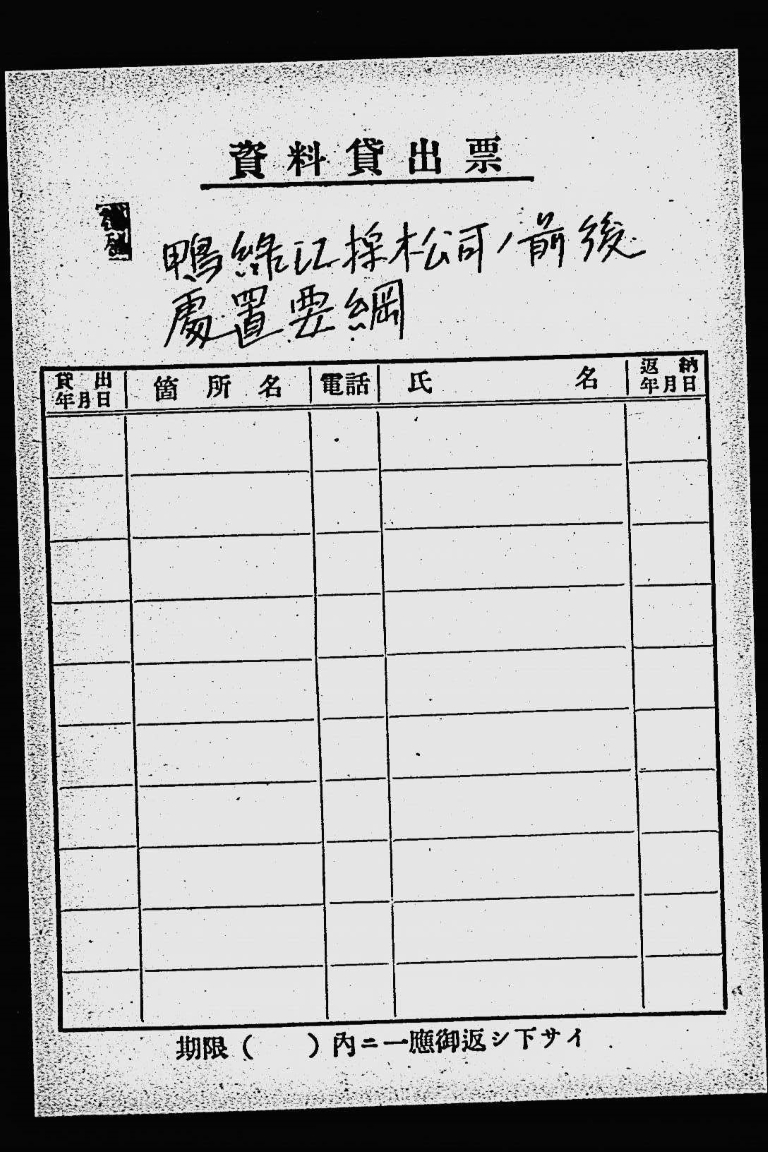 資料貸出票
鴨綠江採松司ノ前後
處置要綱
貸出年月日 箇所名 電話 氏名 返納年月日
期限（　　）內ニ一應御返シ下サイ